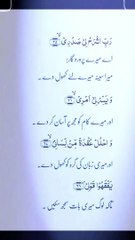 رَبِّ اشْرَحْ لِیْ صَدْرِیْ ﴿۲۵﴾
اے میرے پروردگار!
میرا سینہ میرے لئے کھول دے۔
وَیَسِّرْ لِیْۤ اَمْرِیْ ﴿۲۶﴾
اور میرے کام کو مجھ پر آسان کر دے۔
وَاحْلُلْ عُقْدَةً مِّنْ لِّسَانِیْ ﴿۲۷﴾
اور میری زبان کی گرہ کو کھول دے۔
یَفْقَهُوْا قَوْلِیْ ﴿۲۸﴾
تاکہ لوگ میری بات سمجھ سکیں۔